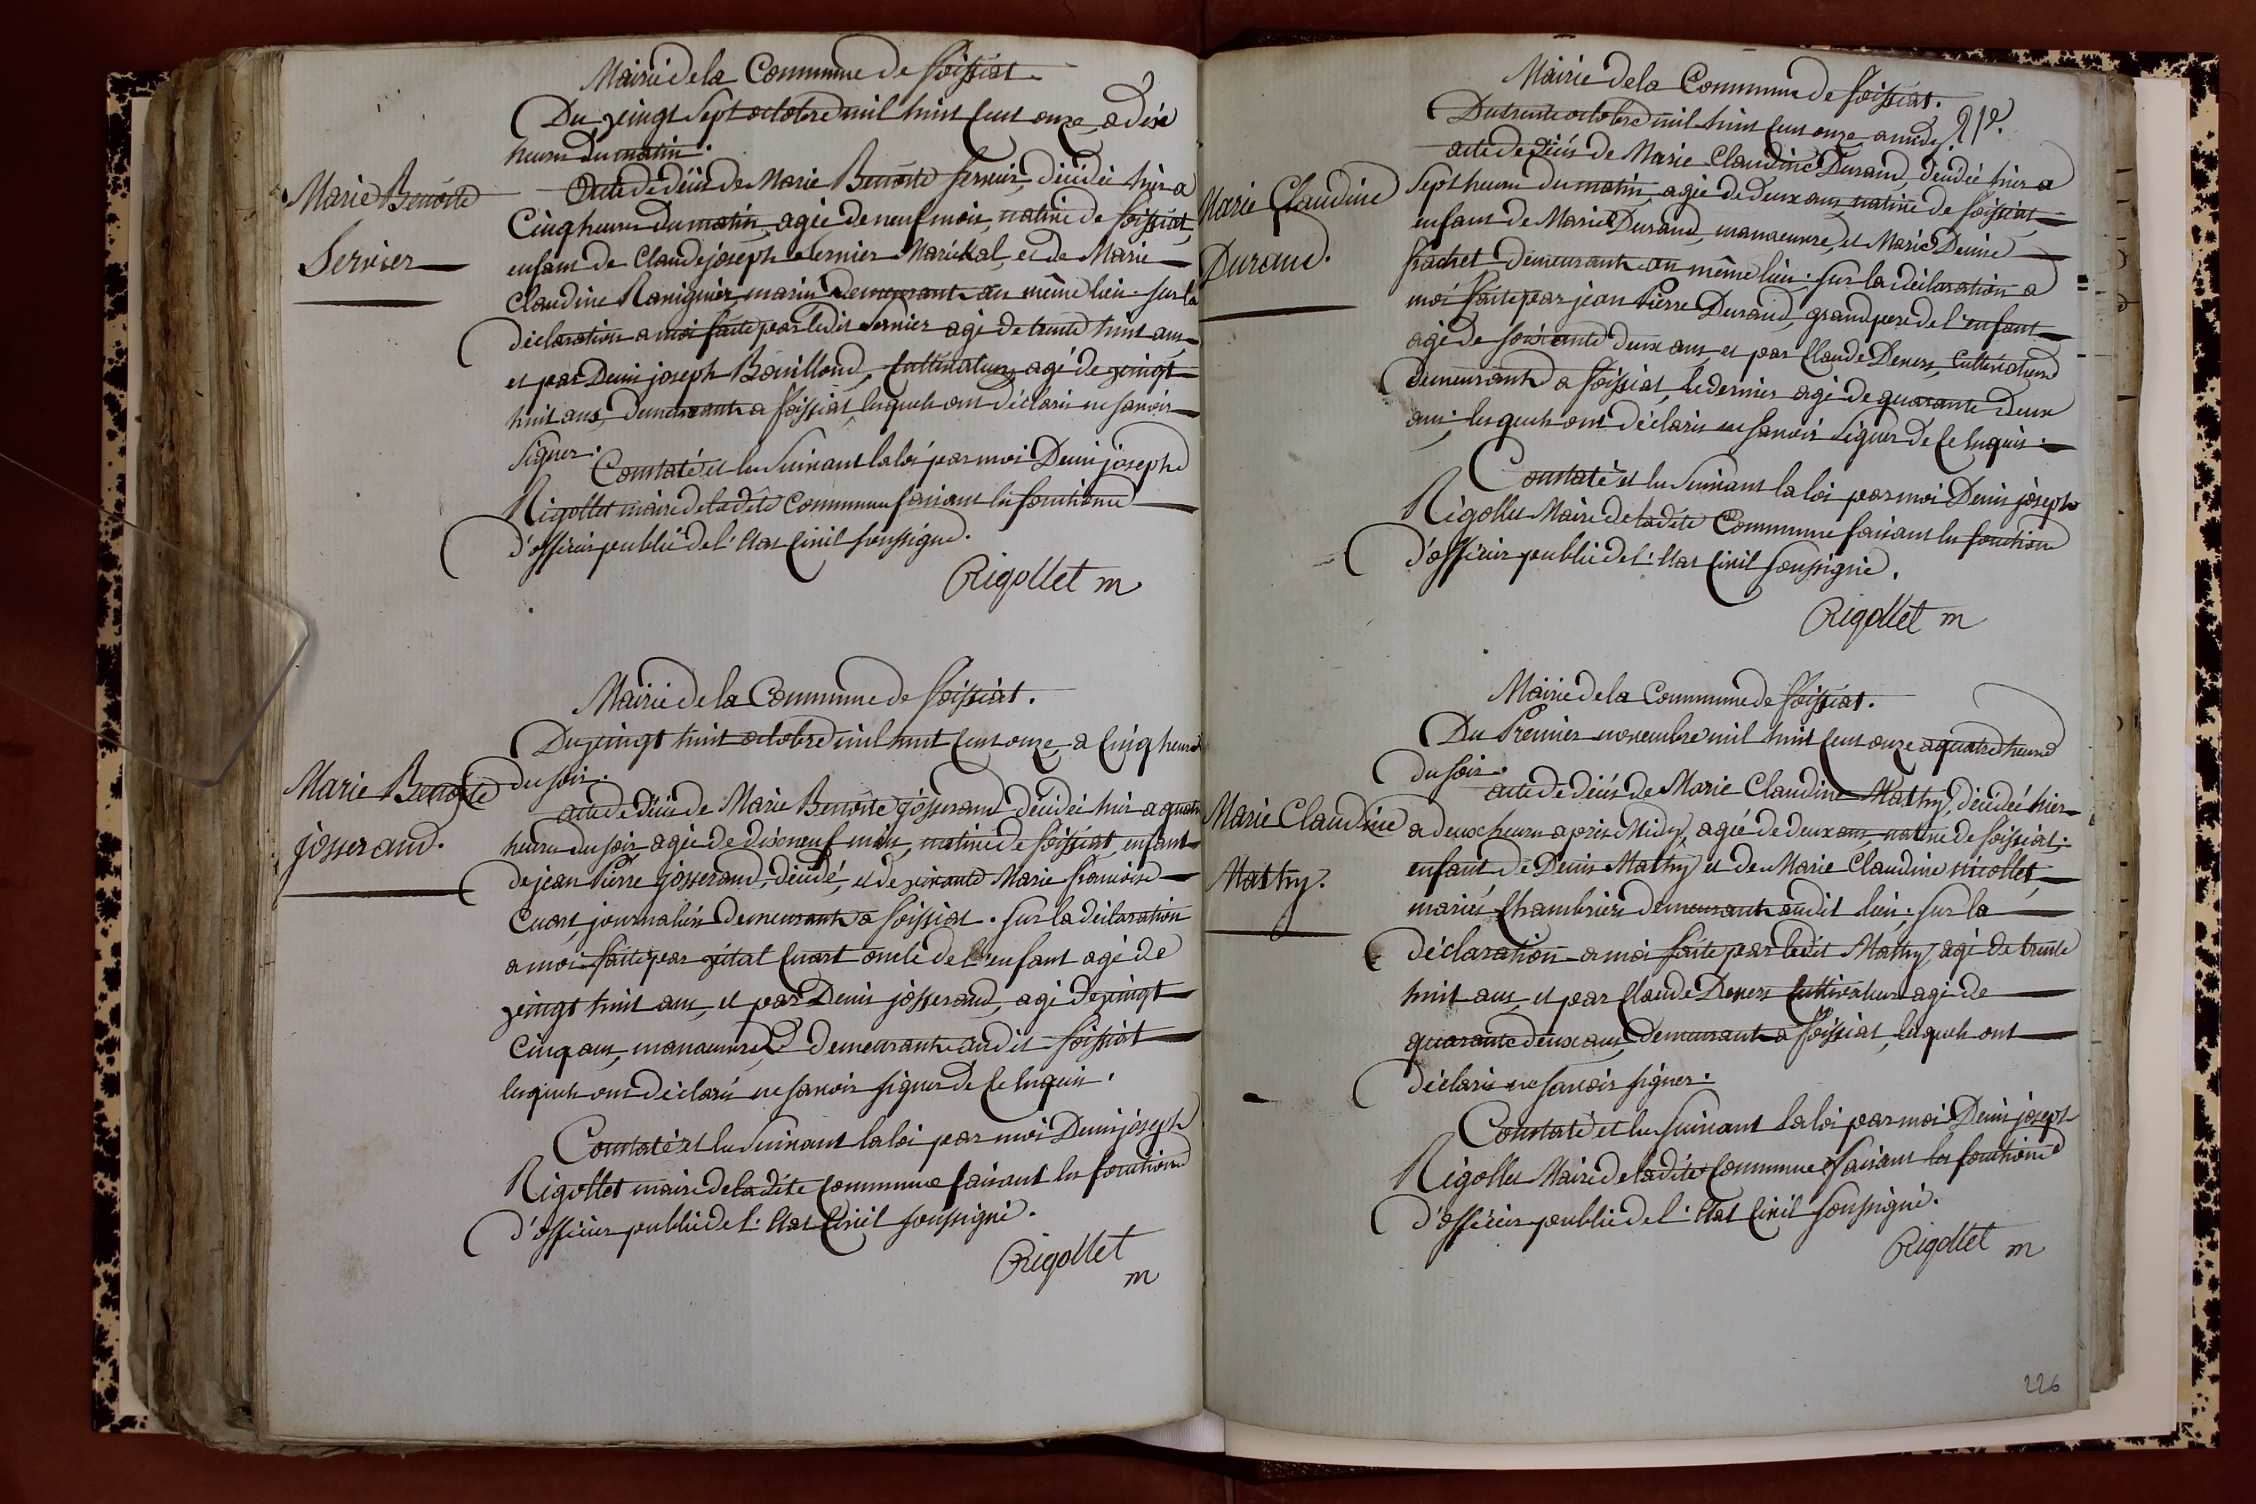 Mairie de la Commune de foissiat.
Du vingt Sept octobre mil huit Cent onze, a dix
heures du matin.
Marie Benoite
Servier
Acte de décès de Marie Benoite Servier, décédée hier a
Cinq heures du matin, agée de neuf mois, native de foissiat,
enfant de Claude joseph Servier Maréchal, et de Marie
Claudine mariés demeurants au même lieu. Sur la
déclaration a moi faite par ledit Servier agé de trente huit ans,
et par Denis joseph Bouilloud, Cultivateur, agé de vingt
huit ans, demeurants a foissiat, lesquels ont déclaré ne savoir
signer.
Constaté et lu Suivant la loi par moi Denis joseph
Rigollet maire de ladite Commune faisant les fonctions
d'officier public de l'Etat Civil soussigné.
Rigollet m
Mairie de la Commune de foissiat.
Du vingt huit octobre mil huit Cent onze, a Cinq heures
du soir.
Marie Benoite
josserand.
acte de décès de Marie Benoite josserand décédée hier a quatre
heures du soir agée de dix neuf mois, native de foissiat, enfant
de jean Pierre josserand, décédé, et de vivante Marie francoise
Cuart, journalière demeurante a foissiat. Sur la déclaration
a moi faite par vital Cuart oncle de l'enfant agé de
vingt huit ans, et par Denis josserand, agé de vingt
Cinq ans, manoeuvres demeurants audit foissiat
lesquels ont déclaré ne savoir signer de Ce Enquis.
Constaté et lu Suivant la loi par moi Denis joseph
Rigollet maire de ladite Commune faisant les fonctions
d'officier public de l'Etat Civil soussigné.
Rigollet
m
Mairie de la Commune de foissiat.
Du trente octobre mil huit Cent onze a midy.
Marie Claudine
Durand.
acte de décès de Marie Claudine Durand, décédée hier a
Sept heures du matin, agée de deux ans, native de foissiat,
enfant de Marie Durand, manoeuvre, et Marie Denise
frachet demeurants au même lieu; sur la déclaration a
moi faite par jean Pierre Durand, grand pere de l'enfant
agé de soixante deux ans et par Claude Cultivateur
demeurants a foissiat, le dernier agé de quarante deux
ans; lesquels ont déclaré ne savoir signer de Ce Enquis.
Constaté et lu Suivant la loi par moi Denis joseph
Rigollet Maire de ladite Commune faisant les fonctions
d'officier public de l'Etat Civil soussigné.
Rigollet m
Mairie de la Commune de foissiat.
Du Premier novembre mil huit Cent onze a quatre heures
du soir.
Marie Claudine
Mathy.
acte de décès de Marie Claudine Mathy, décédée hier
a deux heures apres Midy, agée de deux ans, native de foissiat;
enfant de Denis Mathy et de Marie Claudine nicollet,
mariés Chambriers demeurants audit lieu; sur la
déclaration a moi faite par ledit Mathy, agé de trente
huit ans, et par Claude Cultivateur agé de
quarante deux ans, demeurants a foissiat, lesquels ont
déclaré ne savoir signer.
Constaté et lu Suivant la loi par moi Denis joseph
Rigollet Maire de ladite Commune faisant les fonctions
d'officier public de l'Etat Civil soussigné.
Rigollet m
226